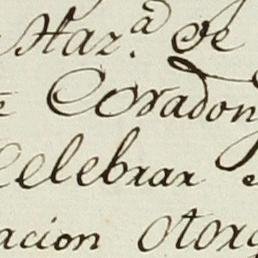 Haz.ª de
Coradon
Celebrar
acion Otorg